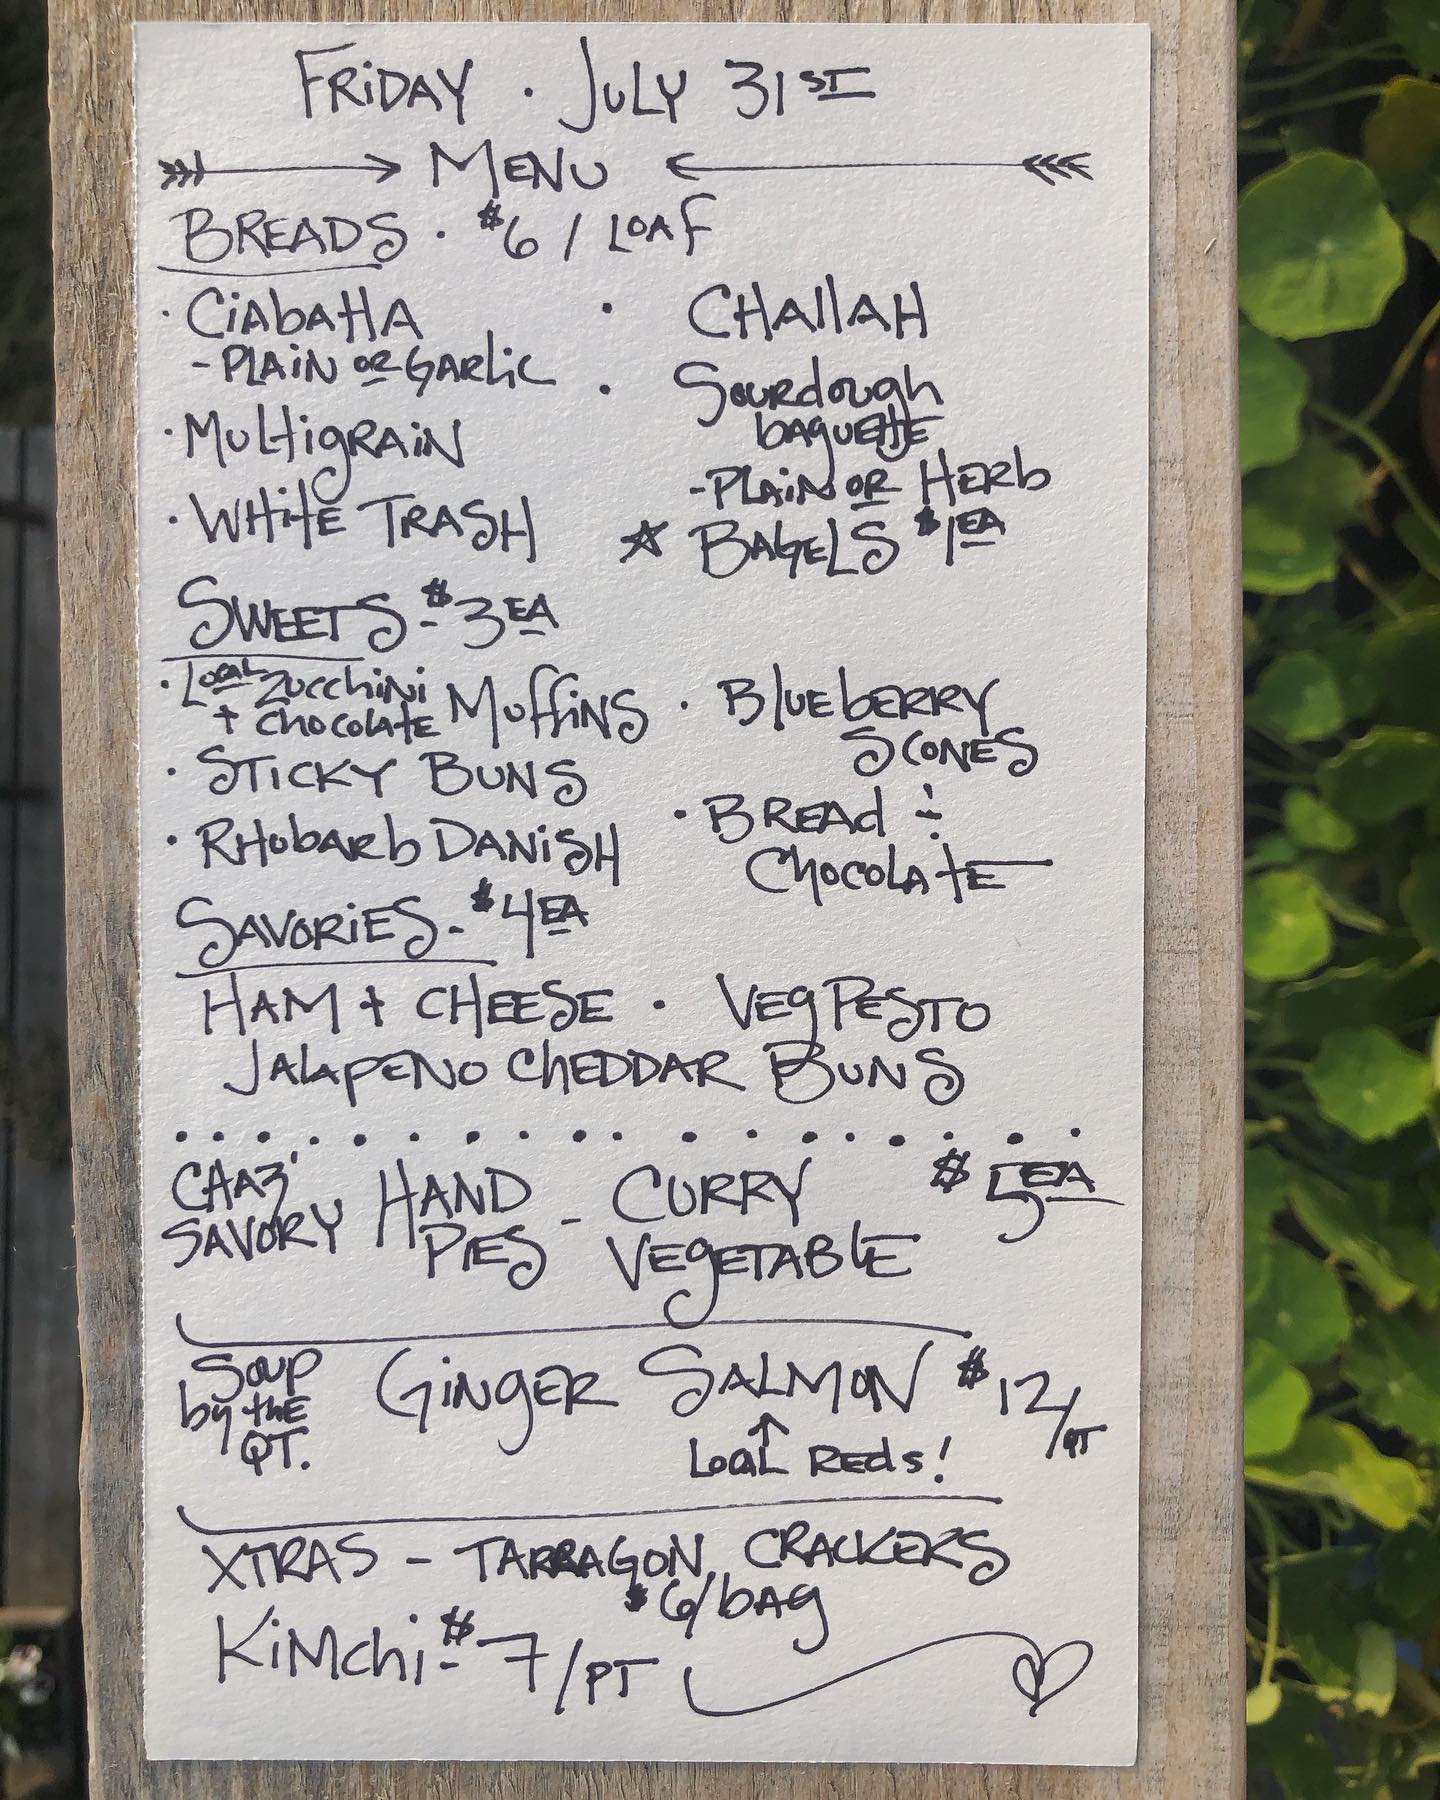 FRiDAY · JULY 31ST
MENU
BREADS · $6 / LOAF
· CiAbattA
- PLAiN OR GARLic
· MULtigRAiN
· WHitE TRASH
· CHAllAH
· Sourdough
bAguEttE
- PLAiN OR HERb
☆ BAgELS $1 EA
SWEETS - $3 EA
· LOCAL Zucchini
+ CHocolAtE MuffiNS
· STiCKY BUNS
· RHubARb DANiSH
· BluEbERRY
SCONES
· BREAd ÷
CHOCOLAtE
SAVORiES - $4 EA
HAM + CHEESE · VEg PESTO
JALAPENO CHEDDAR BUNS
CHAZ'
SAVORY HAND PIES - CURRY VEgETABLE $5 EA
Soup
by thE
QT.
GiNgER SALMON $12/QT
↑
LOCAL REds!
XTRAS - TARRAGON CRACKERS
$6/bAg
KiMchi - $7/PT